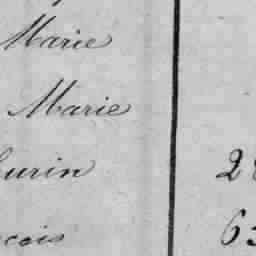 Marie
Marie
urin 2
cois 63